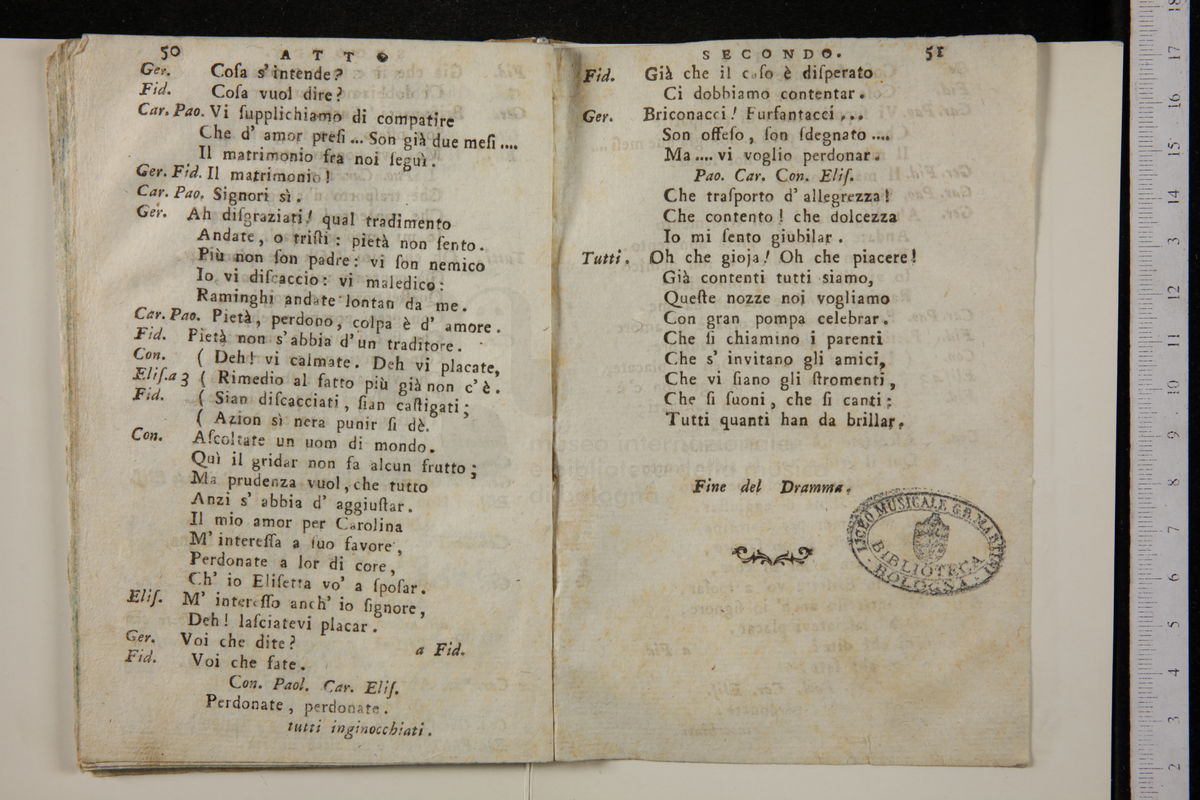 50 ATTO
Ger. Coſa s' intende?
Fid. Coſa vuol dire?
Car. Pao. Vi ſupplichiamo di compatire
Che d' amor preſi ... Son già due meſi ....
Il matrimonio fra noi ſeguì.
Ger. Fid. Il matrimonio!
Car. Pao. Signori sì.
Ger. Ah diſgraziati! qual tradimento
Andate, o triſti: pietà non ſento.
Più non ſon padre: vi ſon nemico
Io vi diſcaccio: vi maledico:
Raminghi andate lontan da me.
Car. Pao. Pietà, perdono, colpa è d' amore.
Fid. Pietà non s' abbia d' un traditore.
Con. ( Deh! vi calmate. Deh vi placate,
Eliſ. a 3 ( Rimedio al fatto più già non c' è.
Fid. ( Sian diſcacciati, ſian caſtigati;
( Azion sì nera punir ſi dè.
Con. Aſcoltate un uom di mondo.
Quì il gridar non fa alcun frutto;
Ma prudenza vuol, che tutto
Anzi s' abbia d' aggiuſtar.
Il mio amor per Carolina
M' intereſſa a ſuo favore,
Perdonate a lor di core,
Ch' io Eliſetta vo' a ſpoſar.
Eliſ. M' intereſſo anch' io ſignore,
Deh! laſciatevi placar.
Ger. Voi che dite? a Fid.
Fid. Voi che fate.
Con. Paol. Car. Eliſ.
Perdonate, perdonate.
tutti inginocchiati.
SECONDO. 51
Fid. Già che il caſo è diſperato
Ci dobbiamo contentar.
Ger. Briconacci! Furfantacci ...
Son offeſo, ſon ſdegnato ....
Ma .... vi voglio perdonar.
Pao. Car. Con. Eliſ.
Che traſporto d' allegrezza!
Che contento! che dolcezza
Io mi ſento giubilar.
Tutti. Oh che gioja! Oh che piacere!
Già contenti tutti siamo,
Queſte nozze noi vogliamo
Con gran pompa celebrar.
Che ſi chiamino i parenti
Che s' invitano gli amici,
Che vi ſiano gli ſtromenti,
Che ſi ſuoni, che ſi canti:
Tutti quanti han da brillar.
Fine del Dramma.
LICEO MUSICALE G.B. MARTINI
BIBLIOTECA
BOLOGNA
museo internazionale
e biblioteca della musica
di bologna
18
17
16
15
14
13
12
11
10
9
8
7
6
5
4
3
2